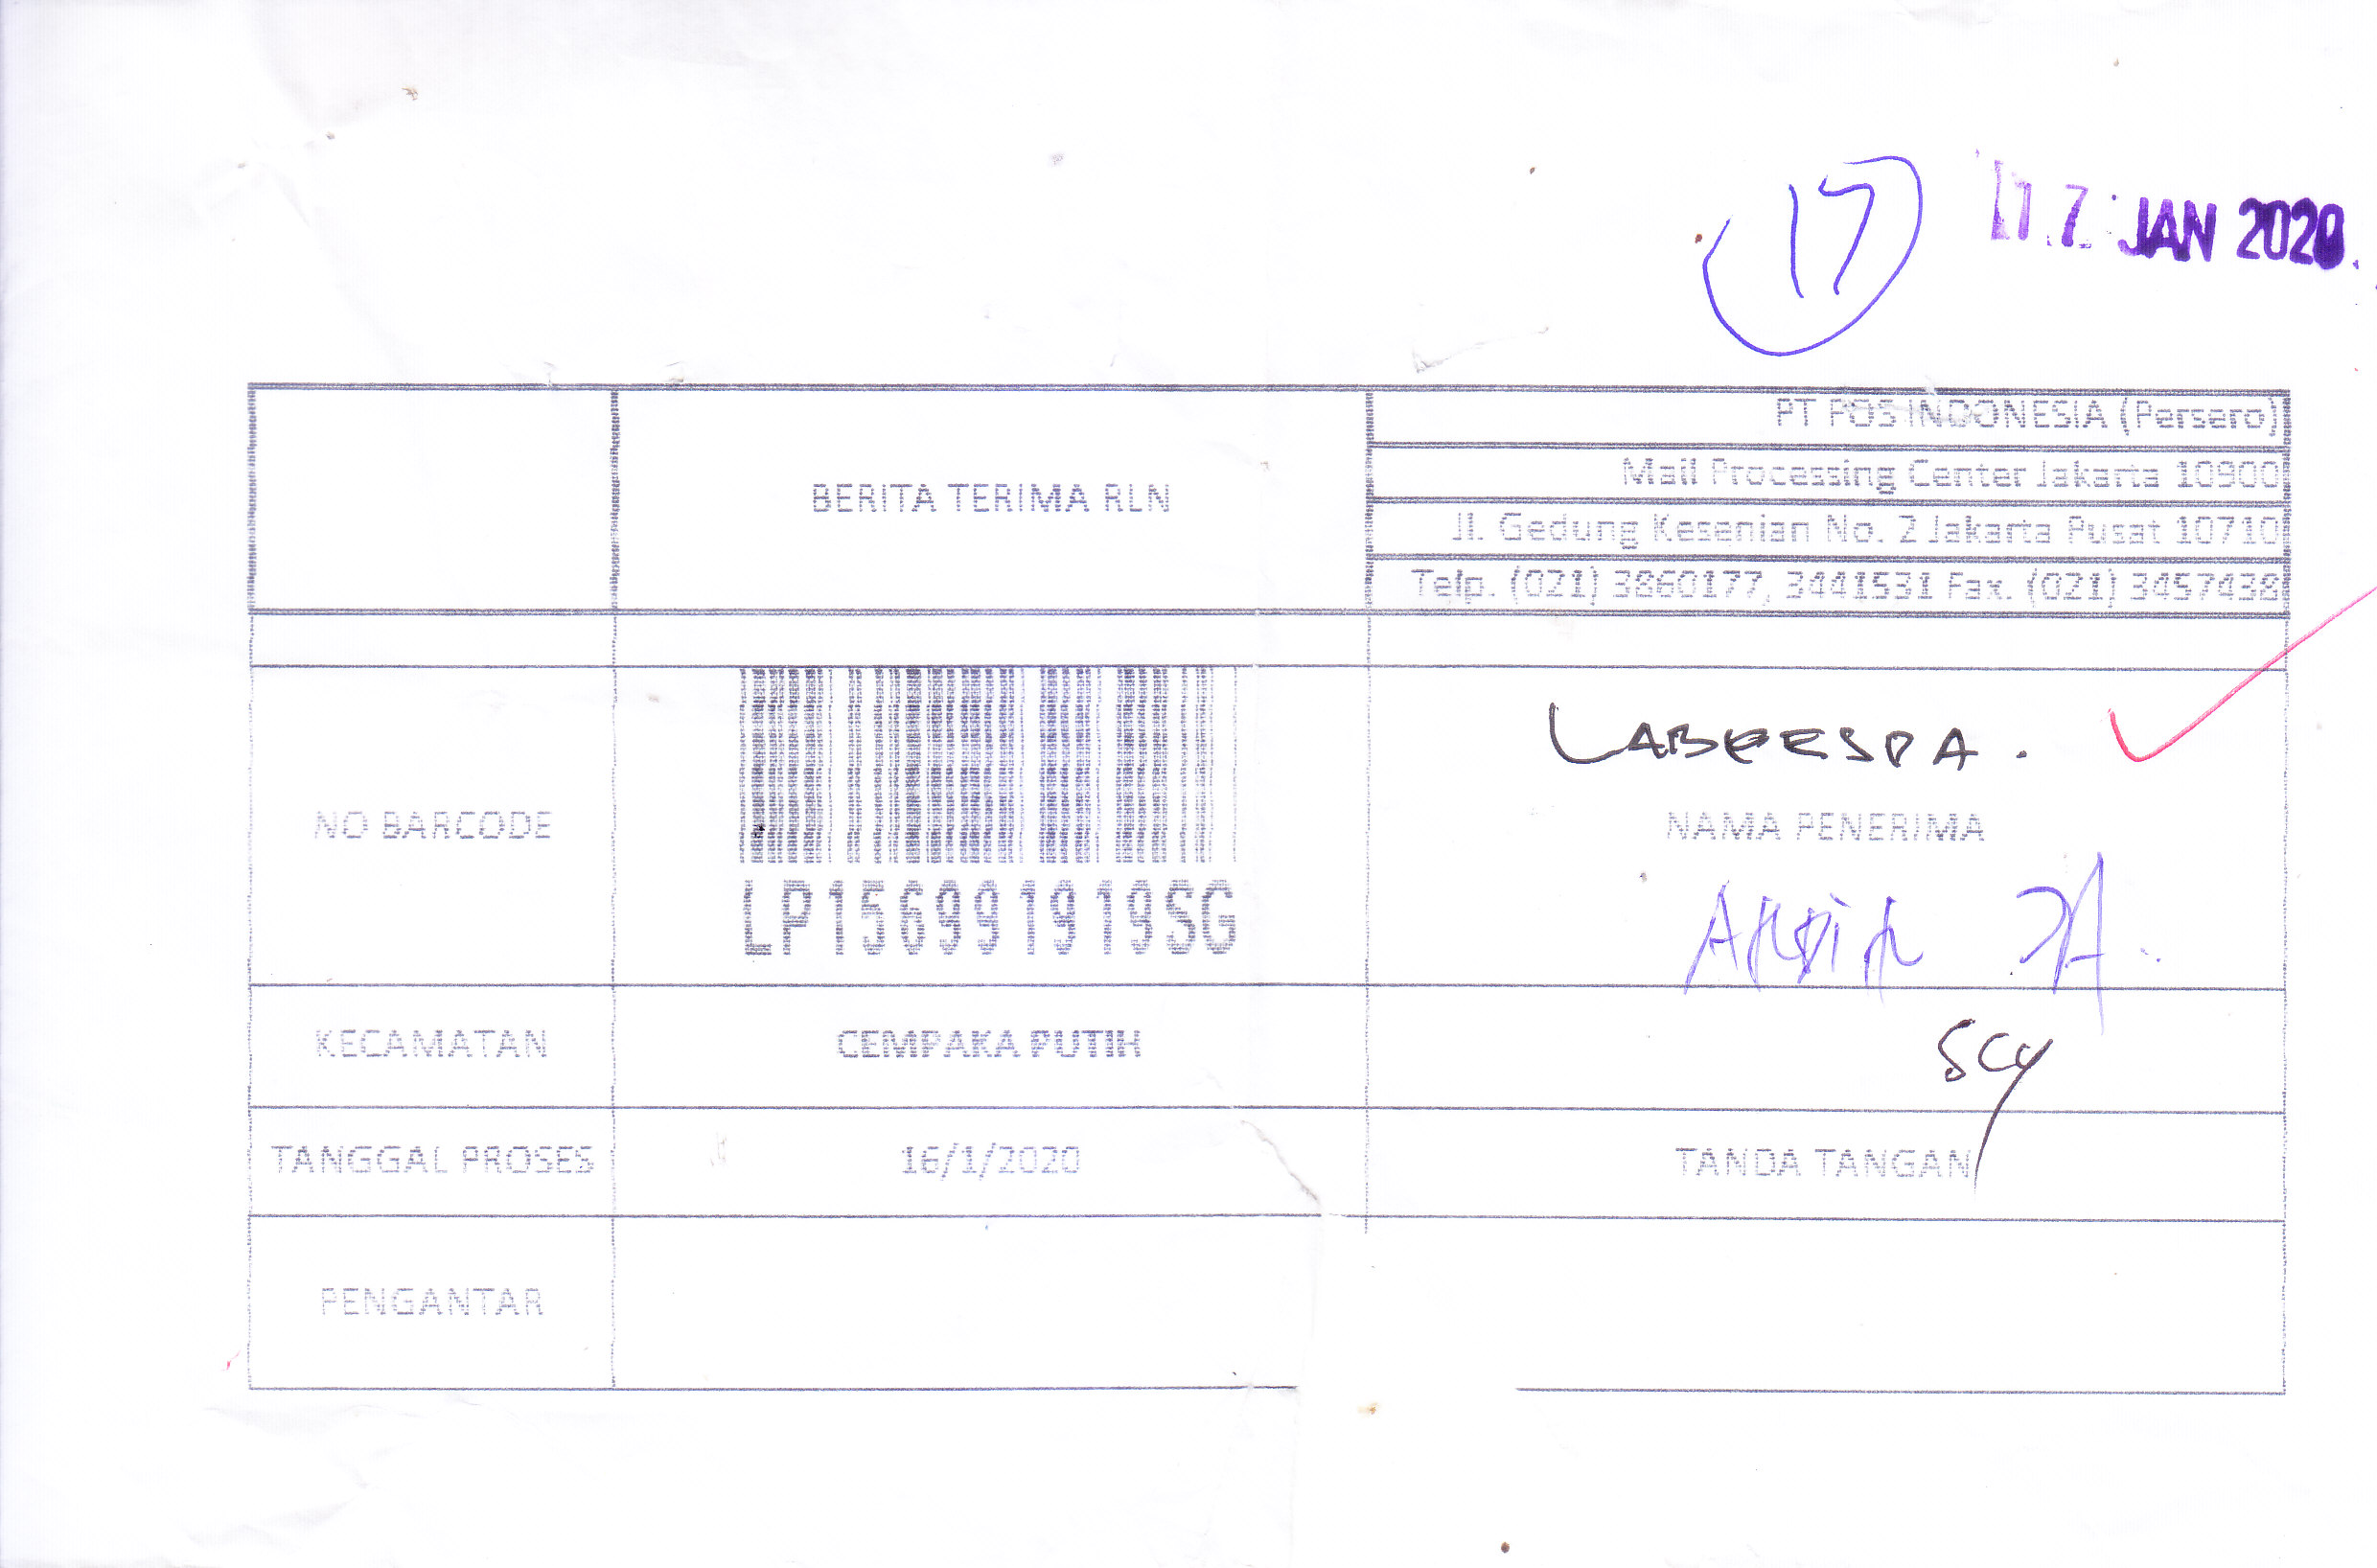 17
17 JAN 2020
BERITA TERIMA RLN
PT POS INDONESIA (Persero)
Mail Processing Center Jakarta 10900
Jl. Gedung Kesenian No. 2 Jakarta Pusat 10710
Telp. (021) Fax. (021)
NO BARCODE
LP156991919SG
LABKESDA.
NAMA PENERIMA
KECAMATAN
CEMPAKA PUTIH
TANGGAL PROSES
16/1/2020
TANDA TANGAN
PENGANTAR